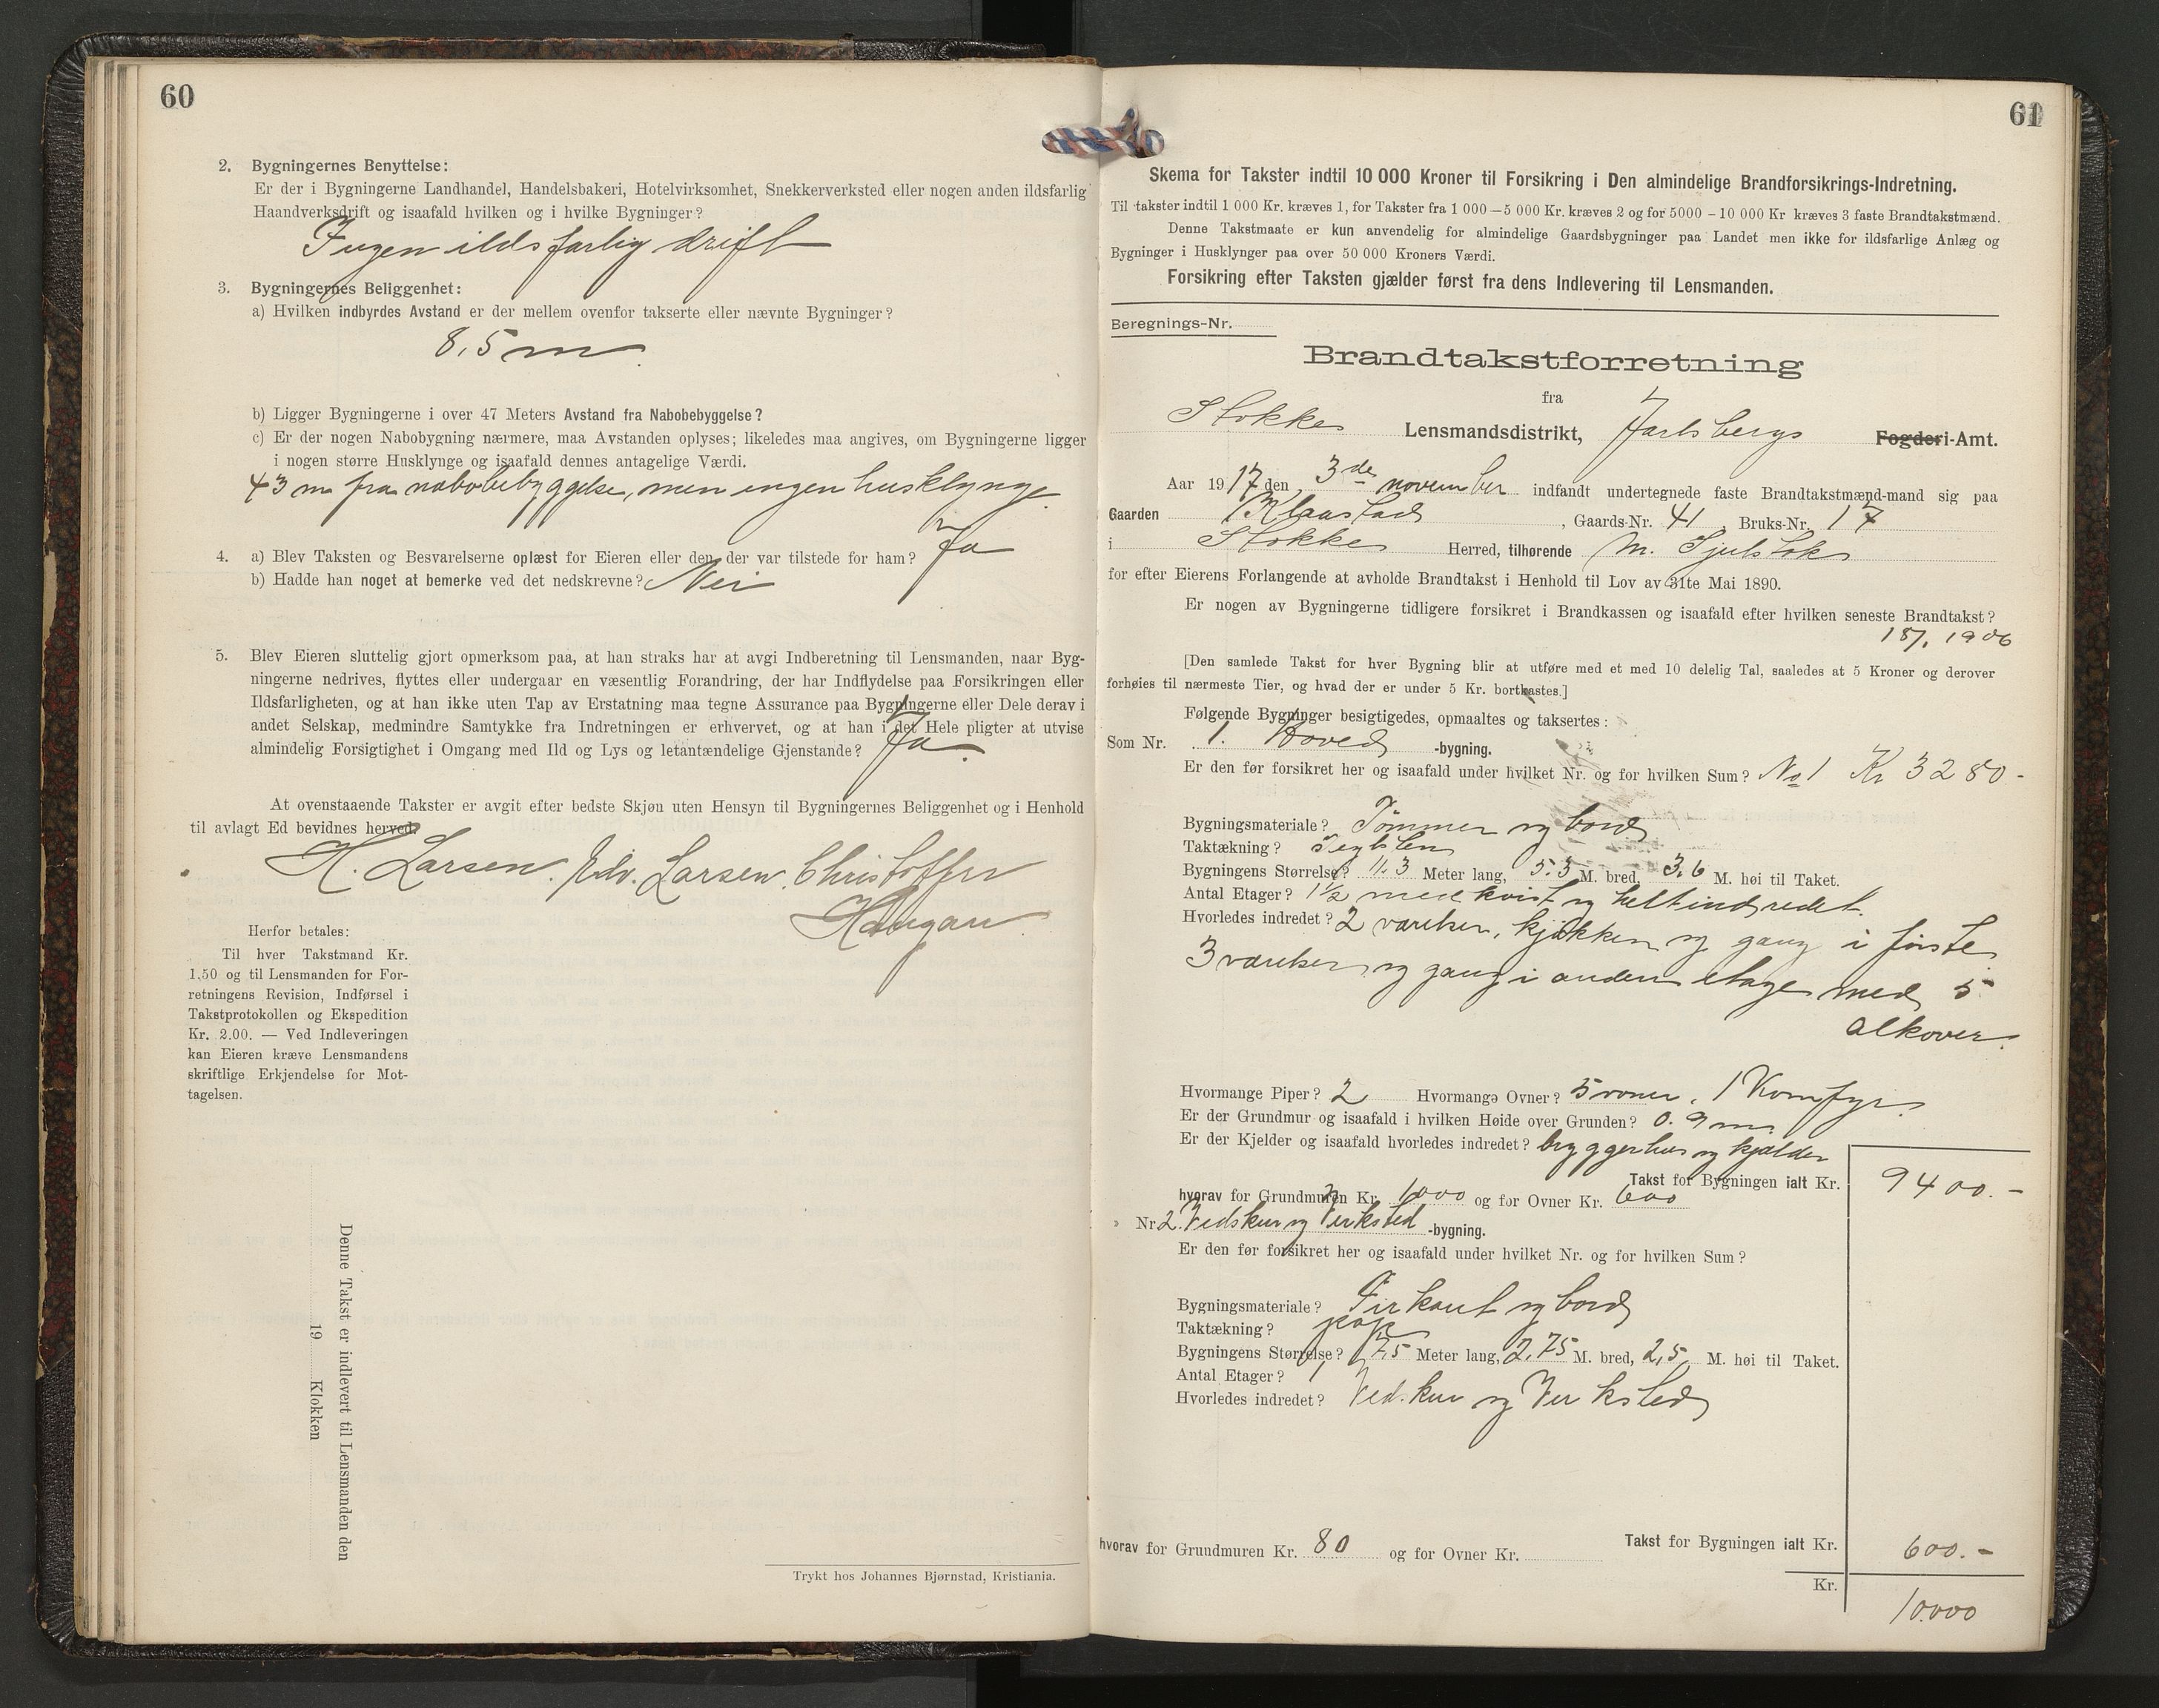 60
2. Bygningernes Benyttelse:
Er der i Bygningerne Landhandel, Handelsbakeri, Hotelvirksomhet, Snekkerverksted eller nogen anden ildsfarlig
Haandverksdrift og isaafald hvilken og i hvilke Bygninger?
Ingen ildsfarlig drift
3. Bygningernes Beliggenhet:
a) Hvilken indbyrdes Avstand er der mellem ovenfor takserte eller nævnte Bygninger?
8,5 m.
b) Ligger Bygningerne i over 47 Meters Avstand fra Nabobebyggelse?
c) Er der nogen Nabobygning nærmere, maa Avstanden oplyses; likeledes maa angives, om Bygningerne ligger
i nogen større Husklynge og isaafald dennes antagelige Værdi.
43 m fra nabobebyggelse, men ingen husklynge.
4. a) Blev Taksten og Besvarelserne oplæst for Eieren eller den, der var tilstede for ham? Ja
b) Hadde han noget at bemerke ved det nedskrevne? Nei
5. Blev Eieren sluttelig gjort opmerksom paa, at han straks har at avgi Indberetning til Lensmanden, naar Byg-
ningerne nedrives, flyttes eller undergaar en væsentlig Forandring, der har Indflydelse paa Forsikringen eller
Ildsfarligheten, og at han ikke uten Tap av Erstatning maa tegne Assurance paa Bygningerne eller Dele derav i
andet Selskap, medmindre Samtykke fra Indretningen er erhvervet, og at han i det Hele pligter at utvise
almindelig Forsigtighet i Omgang med Ild og Lys og letantændelige Gjenstande? Ja.
At ovenstaaende Takster er avgit efter bedste Skjøn uten Hensyn til Bygningernes Beliggenhet og i Henhold
til avlagt Ed bevidnes herved.
H. Larsen. Edv. Larsen. Christoffer
Haugan.
Herfor betales:
Til hver Takstmand Kr.
1,50 og til Lensmanden for For-
retningens Revision, Indførsel i
Takstprotokollen og Ekspedition
Kr. 2.00. — Ved Indleveringen
kan Eieren kræve Lensmandens
skriftlige Erkjendelse for Mot-
tagelsen.
Denne Takst er indlevert til Lensmanden den
19 Klokken
Trykt hos Johannes Bjørnstad, Kristiania.
61
Skema for Takster indtil 10 000 Kroner til Forsikring i Den almindelige Brandforsikrings-Indretning.
Til takster indtil 1 000 Kr. kræves 1, for Takster fra 1 000—5 000 Kr. kræves 2 og for 5000 - 10 000 Kr kræves 3 faste Brandtakstmænd.
Denne Takstmaate er kun anvendelig for almindelige Gaardsbygninger paa Landet men ikke for ildsfarlige Anlæg og
Bygninger i Husklynger paa over 50 000 Kroners Værdi.
Forsikring efter Taksten gjælder først fra dens Indlevering til Lensmanden.
Beregnings-Nr.
Brandtakstforretning
fra
Stokke Lensmandsdistrikt, Jarlsbergs Fogderi-Amt.
Aar 1917 den 3de november indfandt undertegnede faste Brandtakstmænd-mand sig paa
Gaarden Klaastad, Gaards-Nr. 41, Bruks-Nr. 17
i Stokke Herred, tilhørende M. Gjulstok
for efter Eierens Forlangende at avholde Brandtakst i Henhold til Lov av 31te Mai 1890.
Er nogen av Bygningerne tidligere forsikret i Brandkassen og isaafald efter hvilken seneste Brandtakst?
1906
[Den samlede Takst for hver Bygning blir at utføre med et med 10 delelig Tal, saaledes at 5 Kroner og derover
forhøies til nærmeste Tier, og hvad der er under 5 Kr. bortkastes.]
Følgende Bygninger besigtigedes, opmaaltes og taksertes:
Som Nr. 1. Hoved -bygning.
Er den før forsikret her og isaafald under hvilket Nr. og for hvilken Sum? No 1 Kr 3280-
Bygningsmateriale? Tømmer og bord
Taktækning? Teglsten
Bygningens Størrelse? 11.3 Meter lang, 5.3 M. bred, 3,6 M. høi til Taket.
Antal Etager? 1½ med kvist og helt indredet.
Hvorledes indredet? 2 værelser, kjøkken og gang i første
3 værelser og gang i anden etage med 5
alkover.
Hvormange Piper? 2 Hvormange Ovner? 5 ovner, 1 Komfyr.
Er der Grundmur og isaafald i hvilken Høide over Grunden? 0.9 m.
Er der Kjelder og isaafald hvorledes indredet? bryggerhus og kjælder
Takst for Bygningen ialt Kr. 9400.-
hvorav for Grundmuren Kr. 1000 og for Ovner Kr. 600
Nr 2. Vedskur og Verksted -bygning.
Er den før forsikret her og isaafald under hvilket Nr. og for hvilken Sum?
Bygningsmateriale? Firkant og bord
Taktækning? pap
Bygningens Størrelse? 7,5 Meter lang, 2,75 M. bred, 2,5 M. høi til Taket.
Antal Etager? 1
Hvorledes indredet? Vedskur og Verksted
Takst for Bygningen ialt Kr. 600.-
hvorav for Grundmuren Kr. 80 og for Ovner Kr.
Kr. 10.000